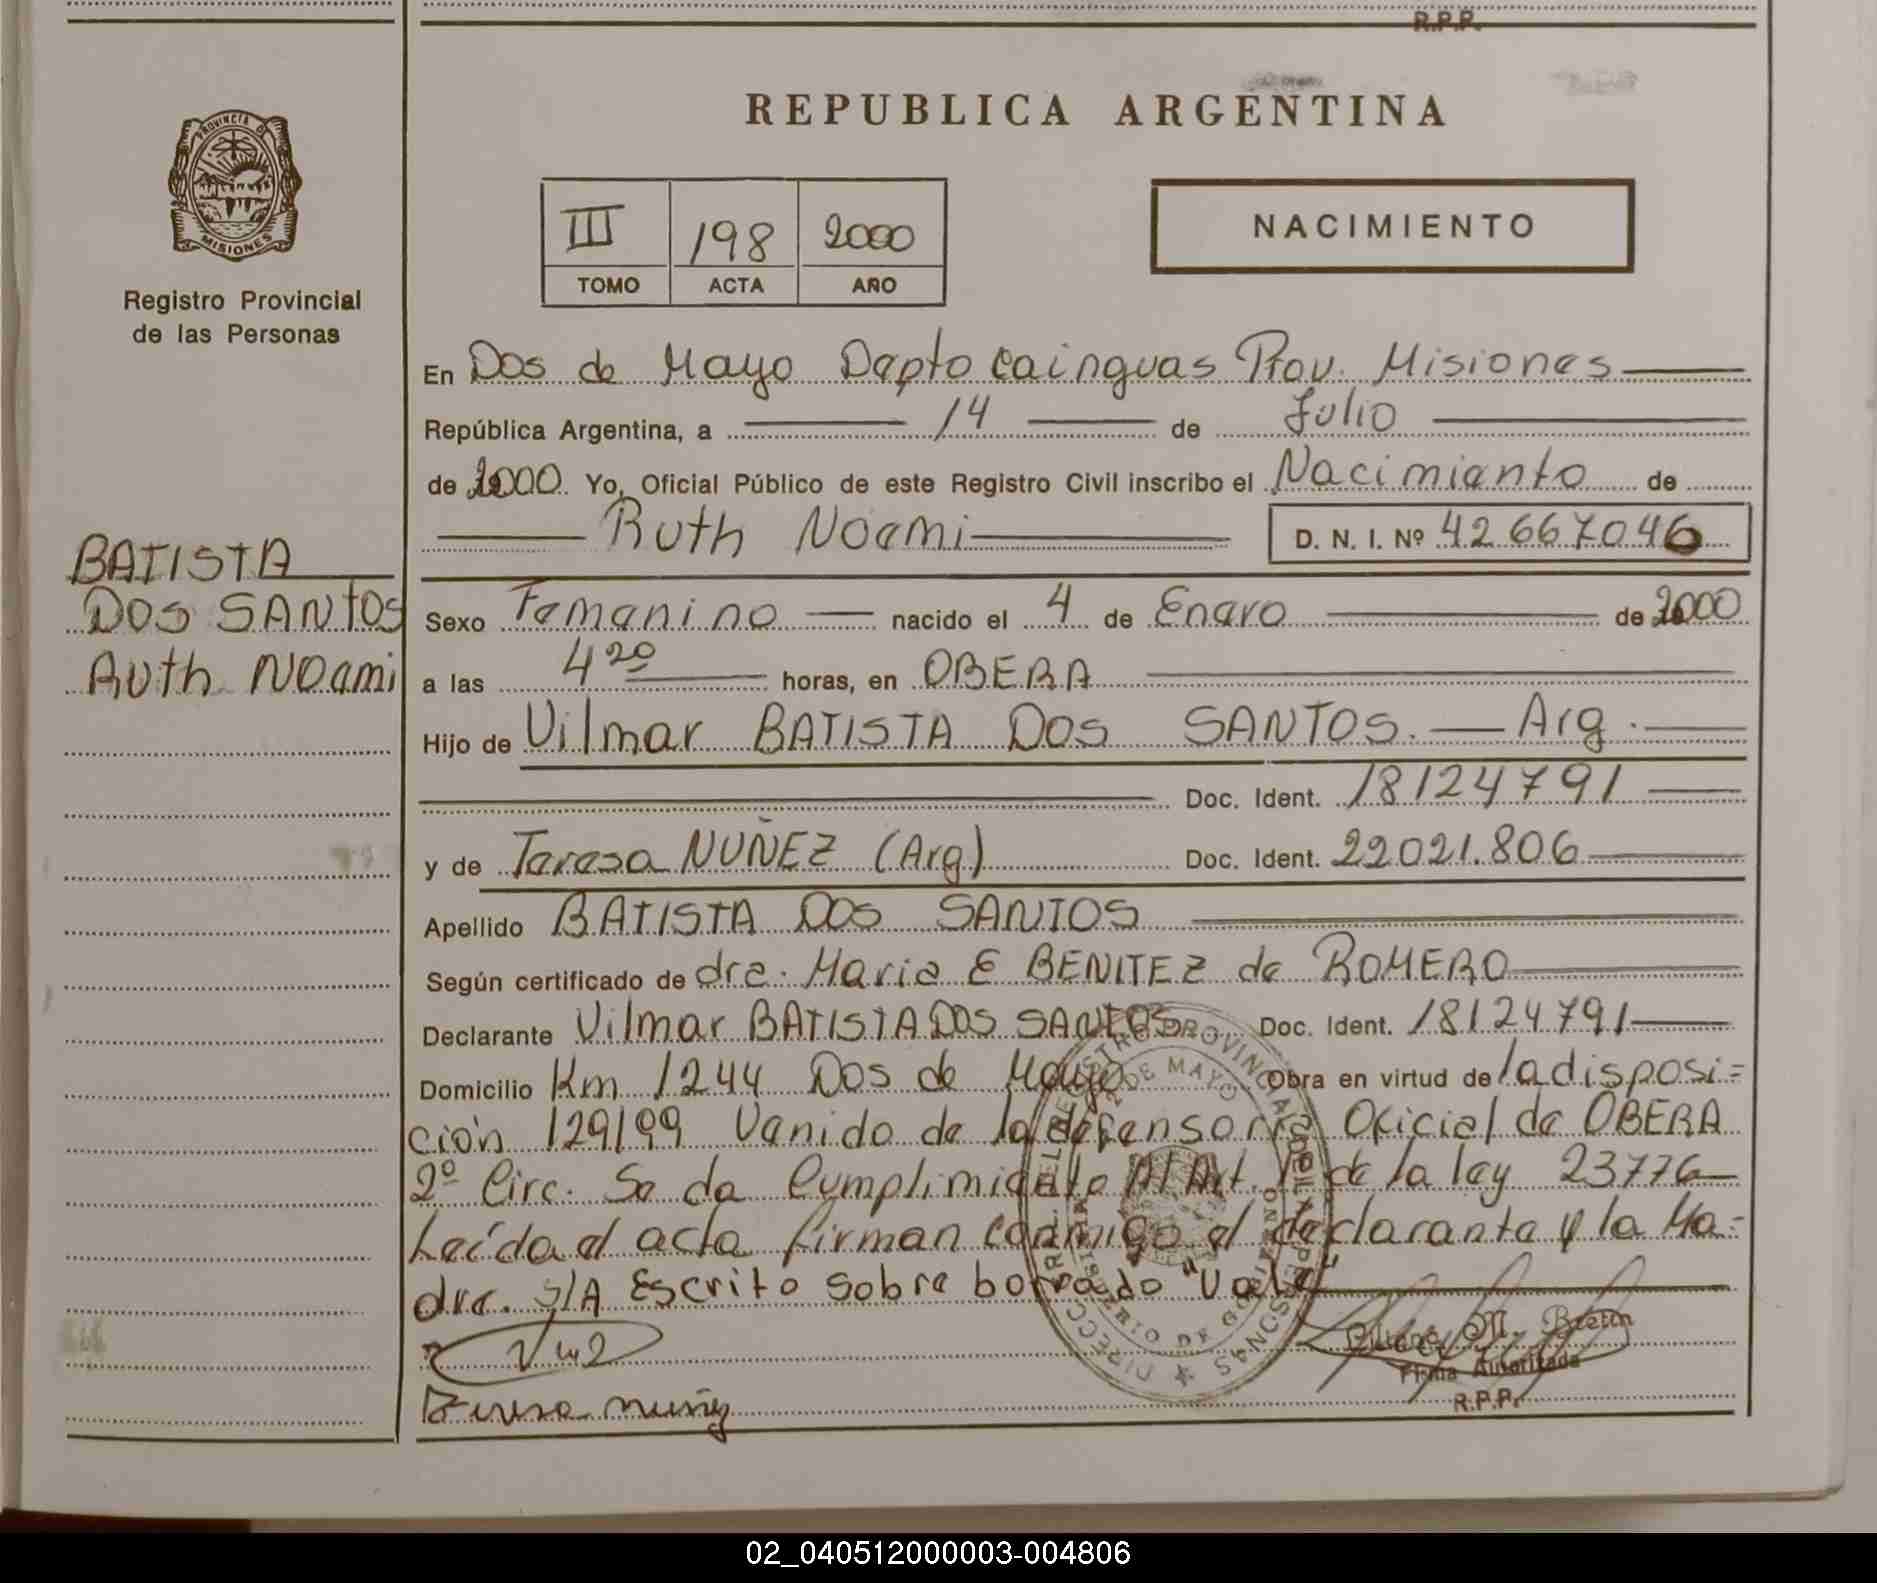 R.P.P.
REPUBLICA ARGENTINA
PROVINCIA DE
MISIONES
Registro Provincial
de las Personas
III 198 2000
TOMO ACTA AÑO
NACIMIENTO
En Dos de Mayo Depto Cainguas Prov. Misiones
República Argentina, a 14 de Julio
de 2000 Yo, Oficial Público de este Registro Civil inscribo el Nacimiento de
Ruth Noemi D. N. I. Nº 42667046
BATISTA
DOS SANTOS
Ruth Noemi
Sexo Femenino nacido el 4 de Enero de 2000
a las 4 20 horas, en OBERA
Hijo de Vilmar BATISTA DOS SANTOS. Arg.
Doc. Ident. 18124791
y de Teresa NUÑEZ (Arg) Doc. Ident. 22021.806
Apellido BATISTA DOS SANTOS
Según certificado de dra. Maria E BENITEZ de ROMERO
Declarante Vilmar BATISTA DOS SANTOS Doc. Ident. 18124791
Domicilio Km 1244 Dos de Mayo Obra en virtud de la disposi=
ción 129/99 Venido de la defensoria Oficial de OBERA
2º Circ. Se da Cumplimiento Al Art. 1 de la ley 23776
Leída el acta firman conmigo el declarante y la Ma=
dre. S/A Escrito sobre borrado "Vale"
Teresa nuñez
Firma Autorizada
R.P.P.
02_040512000003-004806